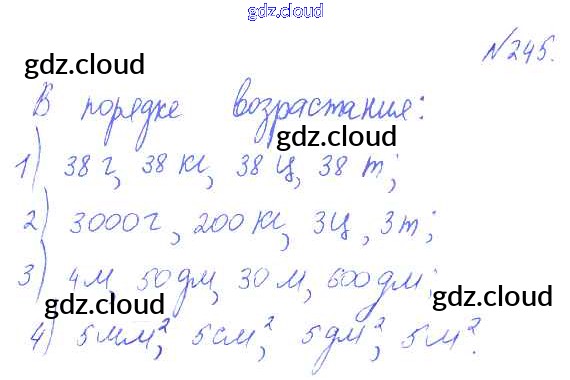 gdz.cloud
№245.
gdz.cloud
В порядке возрастания:
gdz.cloud
1) 38 г, 38 кг, 38 ц, 38 т;
2) 3000 г, 200 кг, 3 ц, 3 т;
3) 4 м, 50 дм, 30 м, 600 дм;
gdz.cloud gdz.cloud
4) 5 мм², 5 см², 5 дм², 5 м².